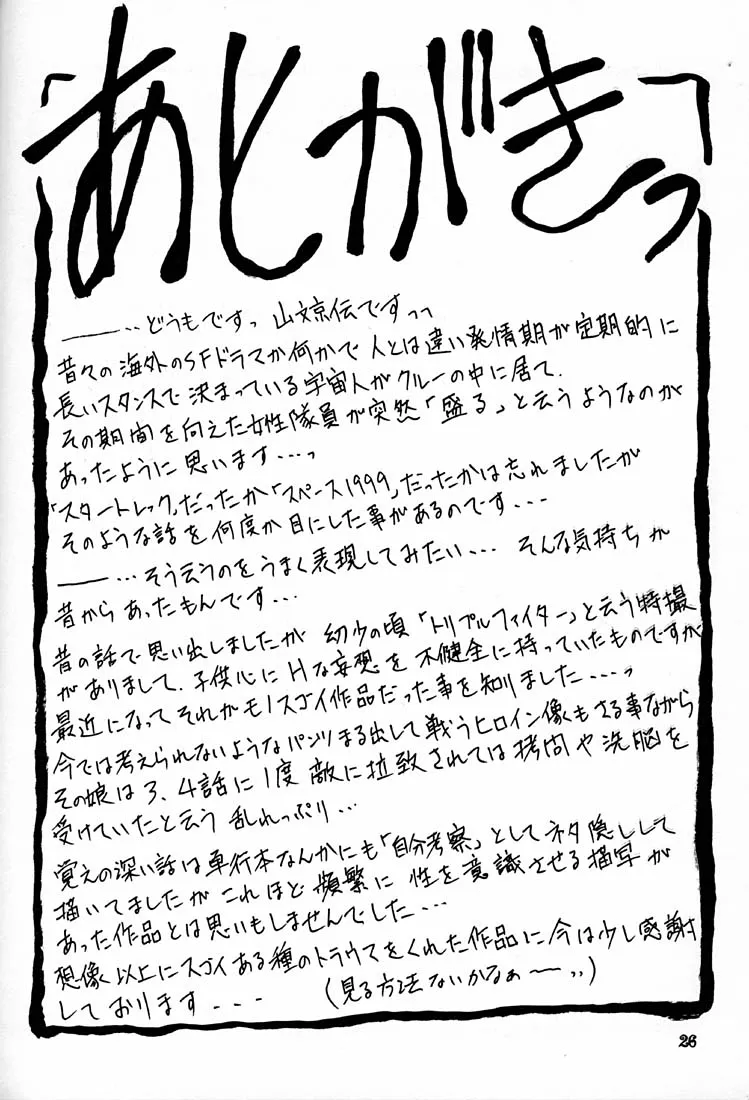 あとがきっ
――‥どうもですっ 山文京伝ですっっ
昔々の海外のSFドラマか何かで人とは違い発情期が定期的に
長いスタンスで決まっている宇宙人がクルーの中に居て、
その期間を向えた女性隊員が突然「盛る」と云うようなのが
あったように思います…っ
「スタートレック」だったか「スペース1999」だったかは忘れましたが
そのような話を何度か目にした事があるのです…
――…そう云うのをうまく表現してみたい… そんな気持ちが
昔からあったもんです…
昔の話で思い出しましたが 幼少の頃「トリプルファイター」と云う特撮
がありまして、子供心にHな妄想を不健全に持っていたものですが
最近になってそれがモノスゴイ作品だった事を知りました…っ
今では考えられないようなパンツまる出しで戦うヒロイン像もさる事ながら
その娘は3、4話に1度 敵に拉致されては拷問や洗脳を
受けていたと云う 乱れっぷり…
覚えの深い話は単行本なんかにも「自分考察」としてネタ隠しして
描いてましたが これほど 頻繁に 性を意識させる描写が
あった作品とは思いもしませんでした…
想像以上にスゴイある種のトラウマをくれた作品に今は少し感謝
しております… (見る方法ないかなぁ〜っっ)
26